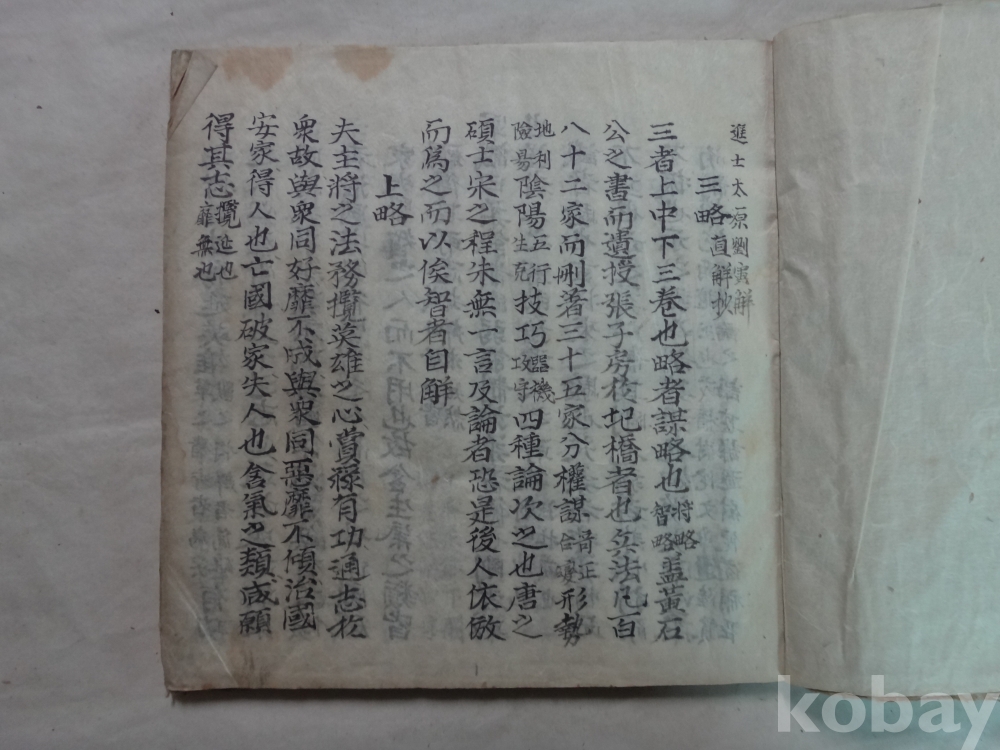 進士太原劉寅解
三略直解抄
三者上中下三卷也略者謀略也將略智略盖黃石
公之書而遺授張子房扵圯橋者也兵法凡百
八十二家而刪著三十五家分權謀奇正合變形勢
地利險易陰陽五行生克技巧器機攻守四種論次之也唐之
碩士宋之程朱無一言及論者恐是後人依倣
而爲之而以俟智者自解
上略
夫主將之法務攬英雄之心賞祿有功通志扵
衆故與衆同好靡不成與衆同惡靡不傾治國
安家得人也亡國破家失人也含氣之類咸願
得其志攬延也靡無也
kobay